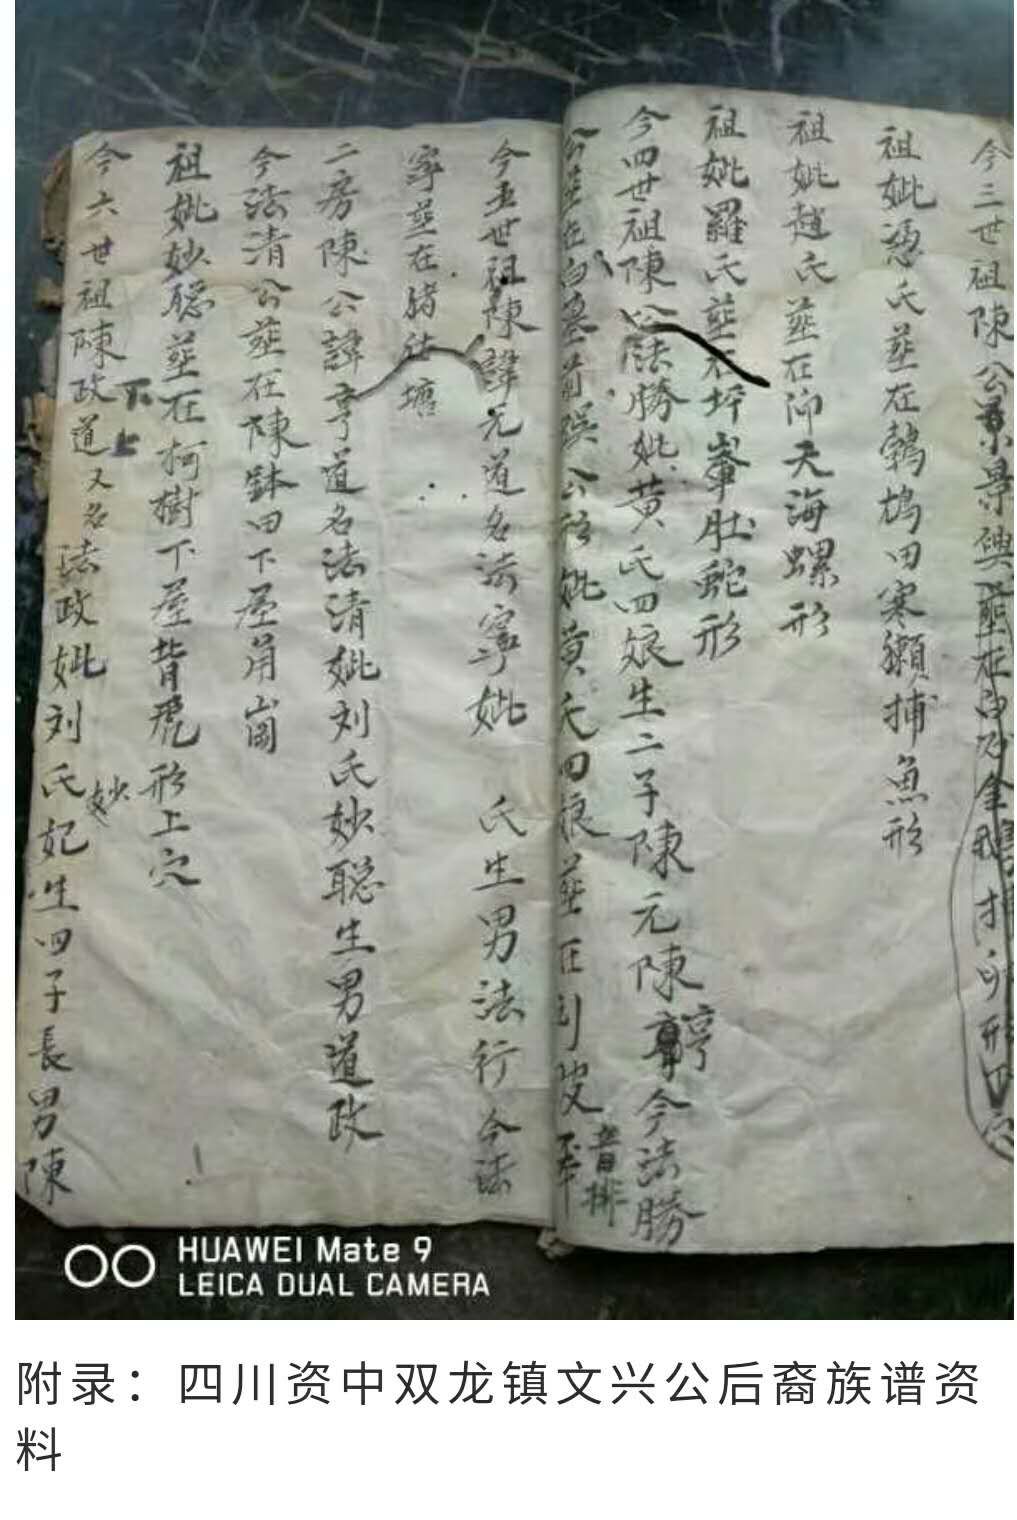 今三世祖陳公景
祖妣馮氏葬在鵓鳩田寒獺捕魚形
祖妣趙氏葬在仰天海螺形
祖妣羅氏葬在坪崋肚蛇形
今四世祖陳公法勝妣黄氏四娘生二子陳元陳亨今法勝
公葬在白墓前 公 妣黄氏四娘葬在
昔排
今五世祖陳諱元道名法寧妣 氏生男法行今法
寧葬在 塘
二房陳公諱亨道名法清妣刘氏妙聪生男道政
今法清公葬在陳鉢田下屋角崗
祖妣妙聪葬在柯樹下屋背虎形上穴
今六世祖陳政道又名法政妣刘氏妃生四子長男陳
下上
妙
HUAWEI Mate 9
LEICA DUAL CAMERA
附录：四川资中双龙镇文兴公后裔族谱资
料